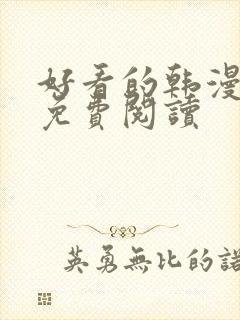 好看的韩漫
免費閱讀
英勇無比的諾